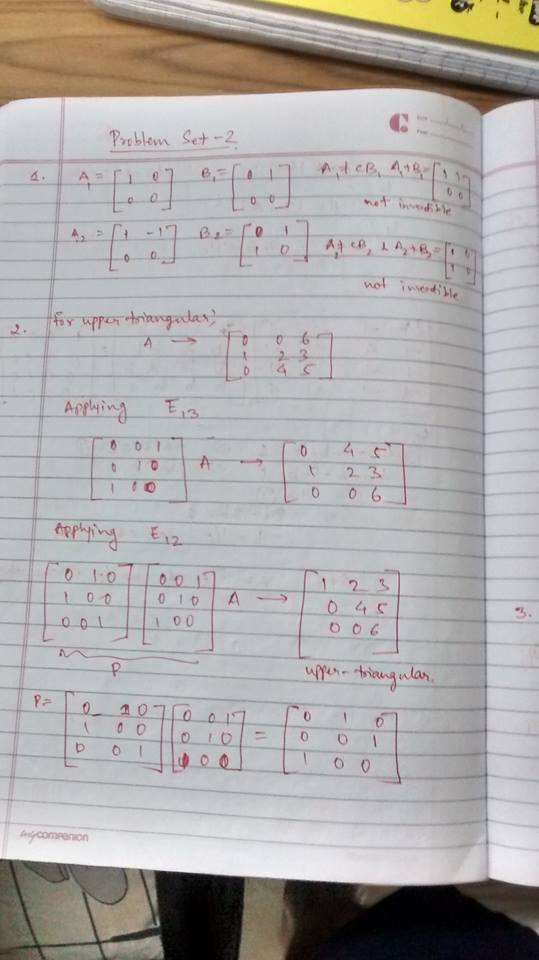 Problem Set-2
1. A₁ = [1 0; 0 0] B₁ = [0 1; 0 0] A₁ ≠ cB₁ A₁+B₁ = [1 1; 0 0]
not invertible
A₂ = [1 -1; 0 0] B₂ = [0 1; 1 0] A₂ ≠ cB₂ & A₂+B₂ = [1 0; 1 0]
not invertible
2. for upper triangular;
A → [0 0 6; 1 2 3; 0 4 5]
Applying E₁₃
[0 0 1; 0 1 0; 1 0 0] A → [0 4 5; 1 2 3; 0 0 6]
Applying E₁₂
[0 1 0; 1 0 0; 0 0 1] [0 0 1; 0 1 0; 1 0 0] A → [1 2 3; 0 4 5; 0 0 6]
P upper-triangular.
P = [0 1 0; 1 0 0; 0 0 1] [0 0 1; 0 1 0; 1 0 0] = [0 1 0; 0 0 1; 1 0 0]
3.
mycompanion